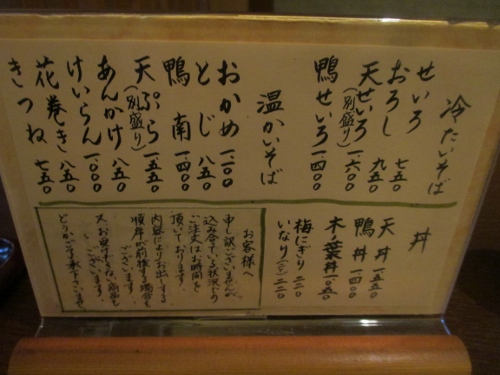 冷たいそば
せいろ 七五〇
おろし 九五〇
天せいろ(別盛り) 一六〇〇
鴨せいろ 一四〇〇
温かいそば
おかめ 一一〇〇
とじ 八五〇
鴨南 一四〇〇
天ぷら(別盛り) 一五五〇
あんかけ 八五〇
けいらん 一〇〇〇
花巻き 八五〇
きつね 七五〇
丼
天丼 一五五〇
鴨丼 一四〇〇
木葉丼 一〇五〇
梅にぎり 二二〇
いなり 二二〇
お客様へ
申し訳ございませんが
込み合っている状況での
ご注文はお時間を
頂いております。
内容によりお出しする
順序が前後する場合も
ございます。